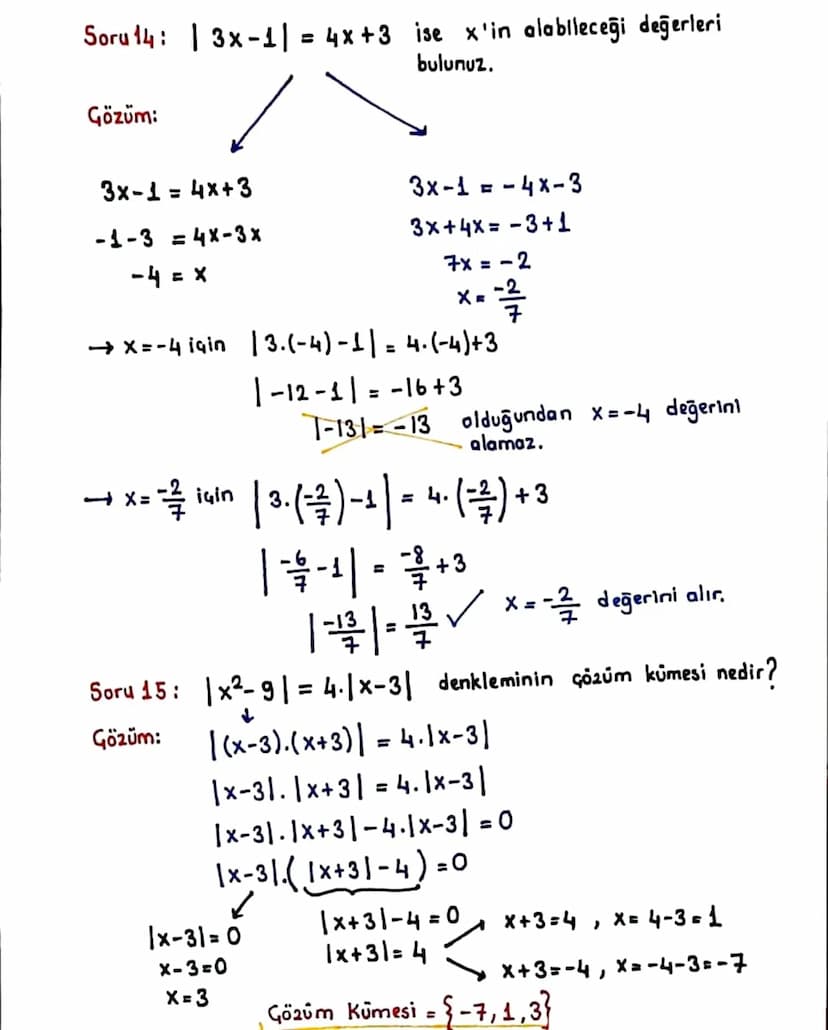 Soru 14: | 3x-1| = 4x+3 ise x'in alabileceği değerleri
bulunuz.
Gözüm:
3x-1 = 4x+3
3x-1 = -4x-3
-1-3 = 4x-3x
3x+4x = -3+1
-4 = x
7x = -2
x = -2/7
→ x=-4 için |3.(-4)-1| = 4.(-4)+3
|-12-1| = -16+3
|-13| = -13 olduğundan x=-4 değerini
alamaz.
→ x = -2/7 için |3.(-2/7)-1| = 4.(-2/7)+3
|-6/7-1| = -8/7+3
|-13/7| = 13/7 ✓ x = -2/7 değerini alır.
Soru 15: |x²-9| = 4.|x-3| denkleminin çözüm kümesi nedir?
Gözüm: |(x-3).(x+3)| = 4.|x-3|
|x-3|.|x+3| = 4.|x-3|
|x-3|.|x+3|-4.|x-3| = 0
|x-3|.(|x+3|-4) = 0
|x-3| = 0
x-3=0
x=3
|x+3|-4=0
|x+3|=4
x+3=4 , x= 4-3=1
x+3=-4 , x=-4-3=-7
Gözüm Kümesi = {-7,1,3}